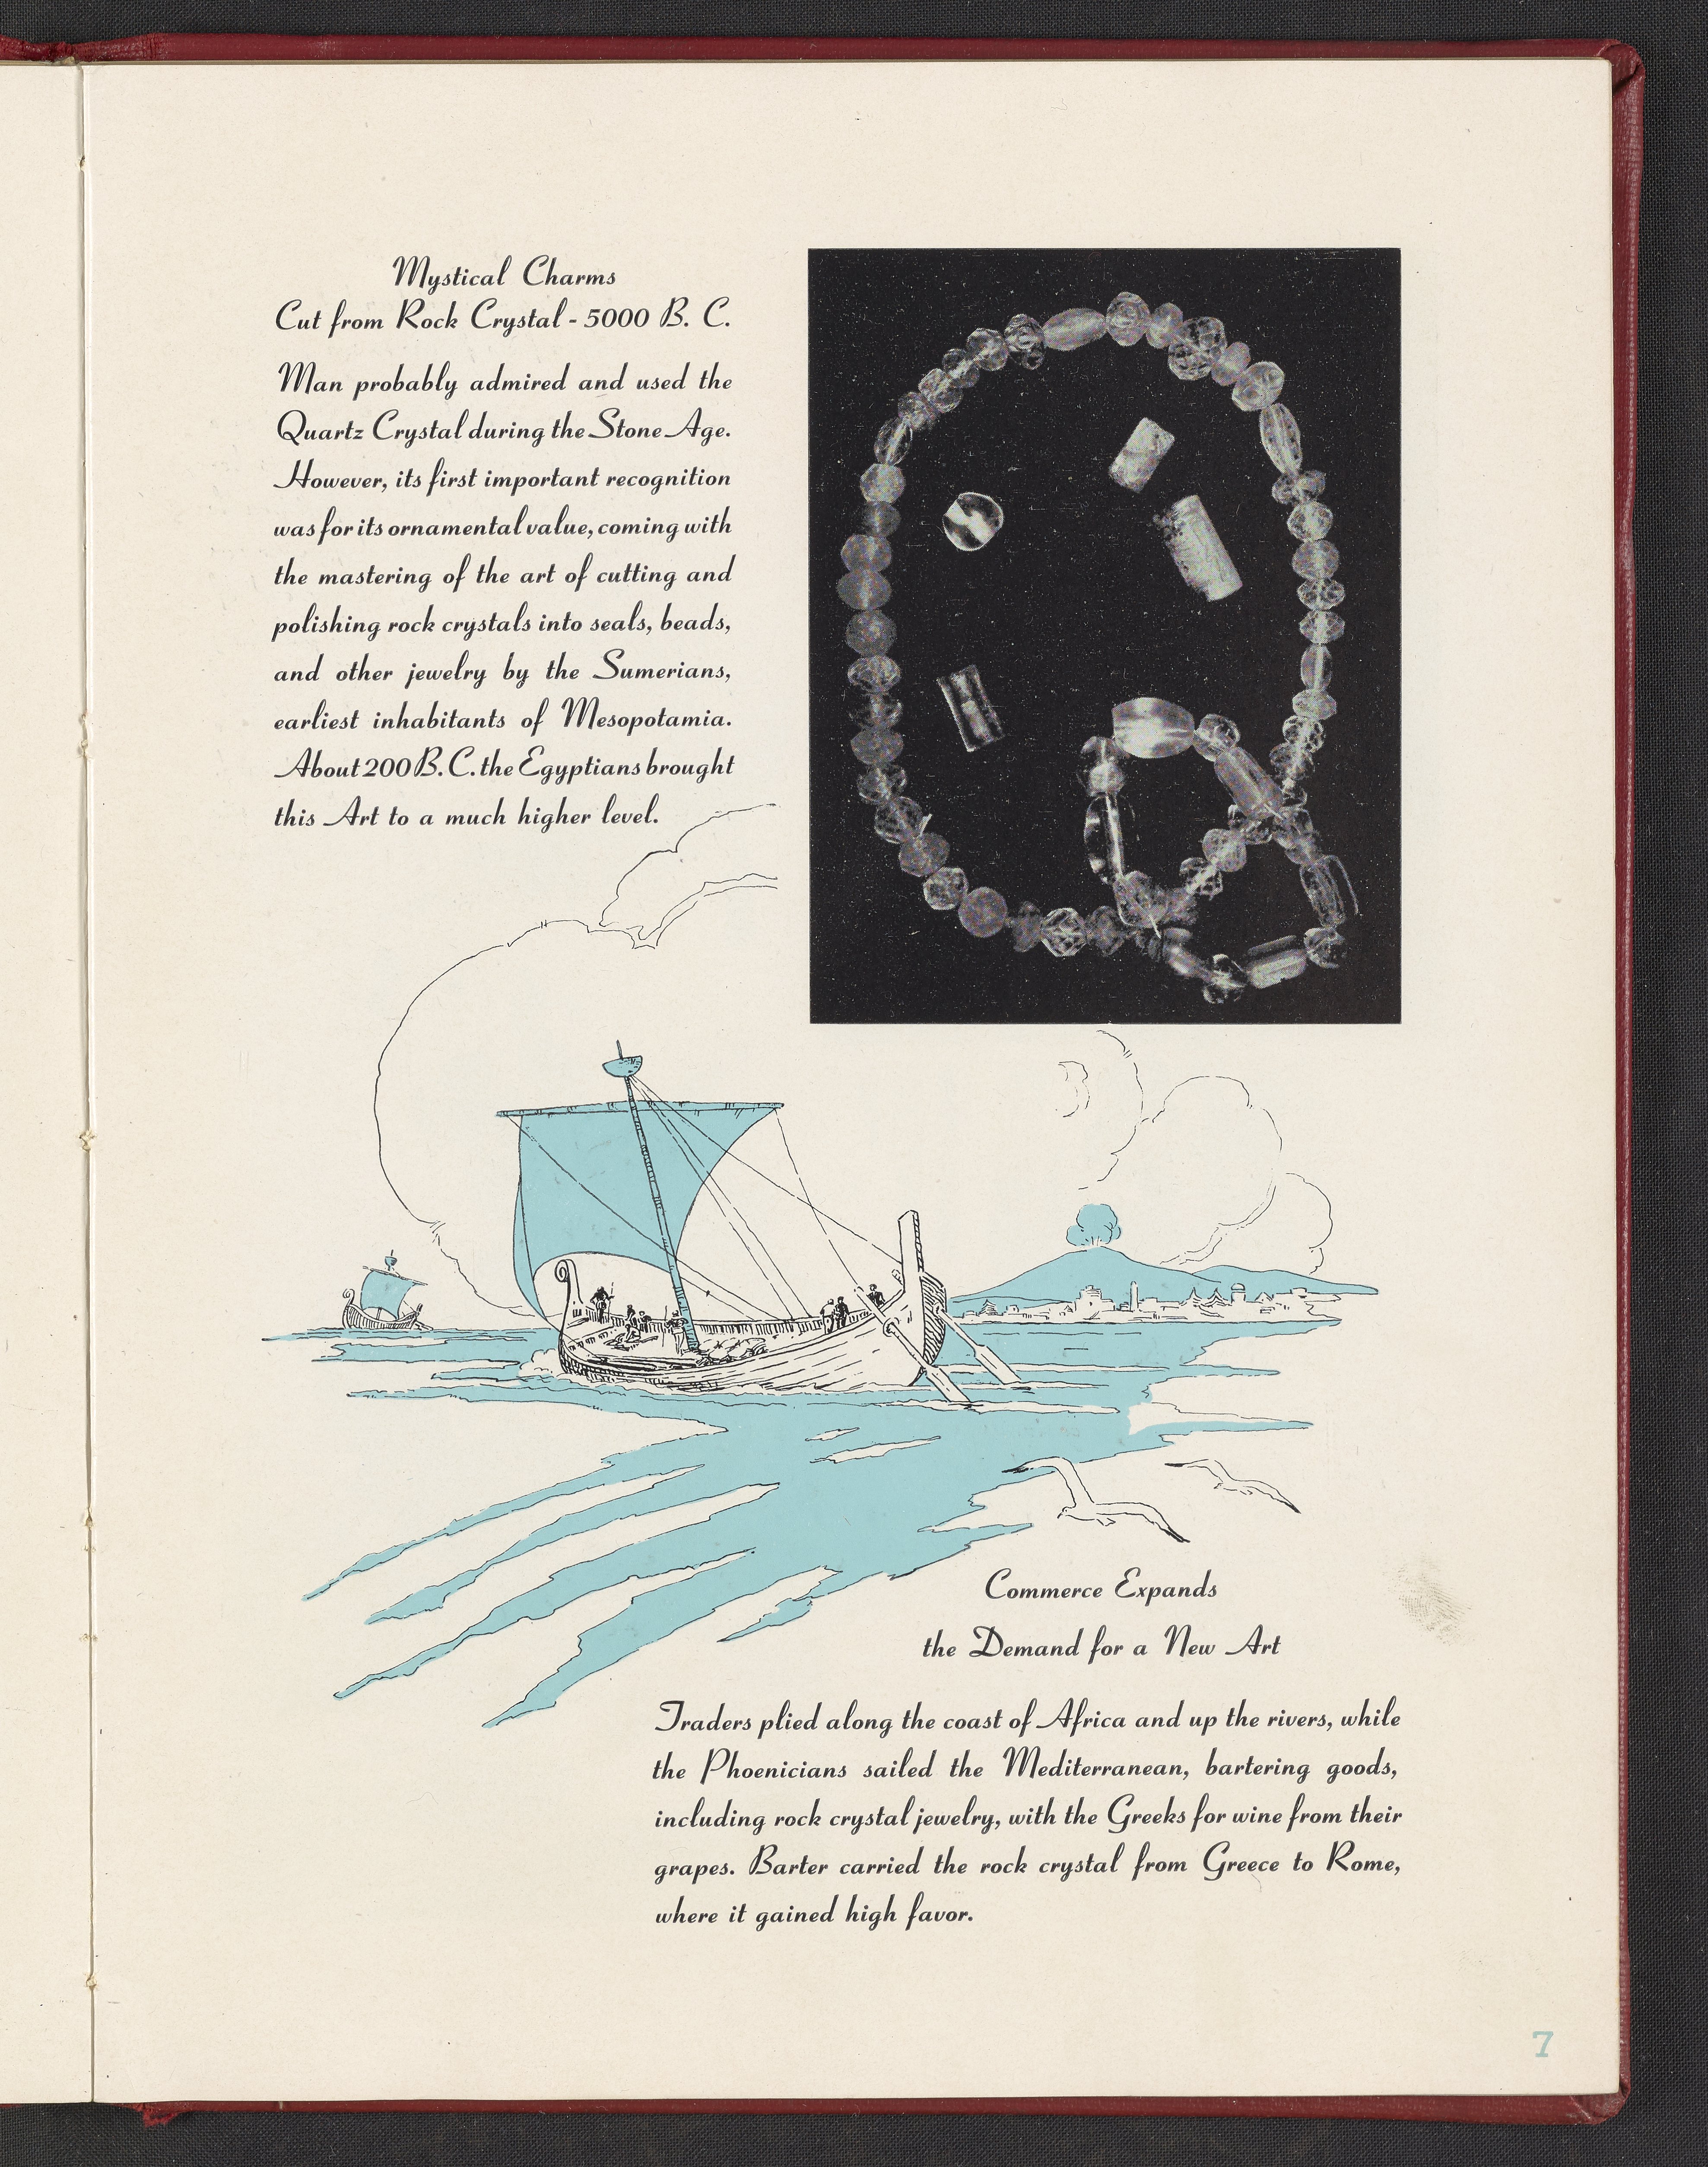 Mystical Charms
Cut from Rock Crystal - 5000 B. C.
Man probably admired and used the
Quartz Crystal during the Stone Age.
However, its first important recognition
was for its ornamental value, coming with
the mastering of the art of cutting and
polishing rock crystals into seals, beads,
and other jewelry by the Sumerians,
earliest inhabitants of Mesopotamia.
About 200 B. C. the Egyptians brought
this Art to a much higher level.
Commerce Expands
the Demand for a New Art
Traders plied along the coast of Africa and up the rivers, while
the Phoenicians sailed the Mediterranean, bartering goods,
including rock crystal jewelry, with the Greeks for wine from their
grapes. Barter carried the rock crystal from Greece to Rome,
where it gained high favor.
7